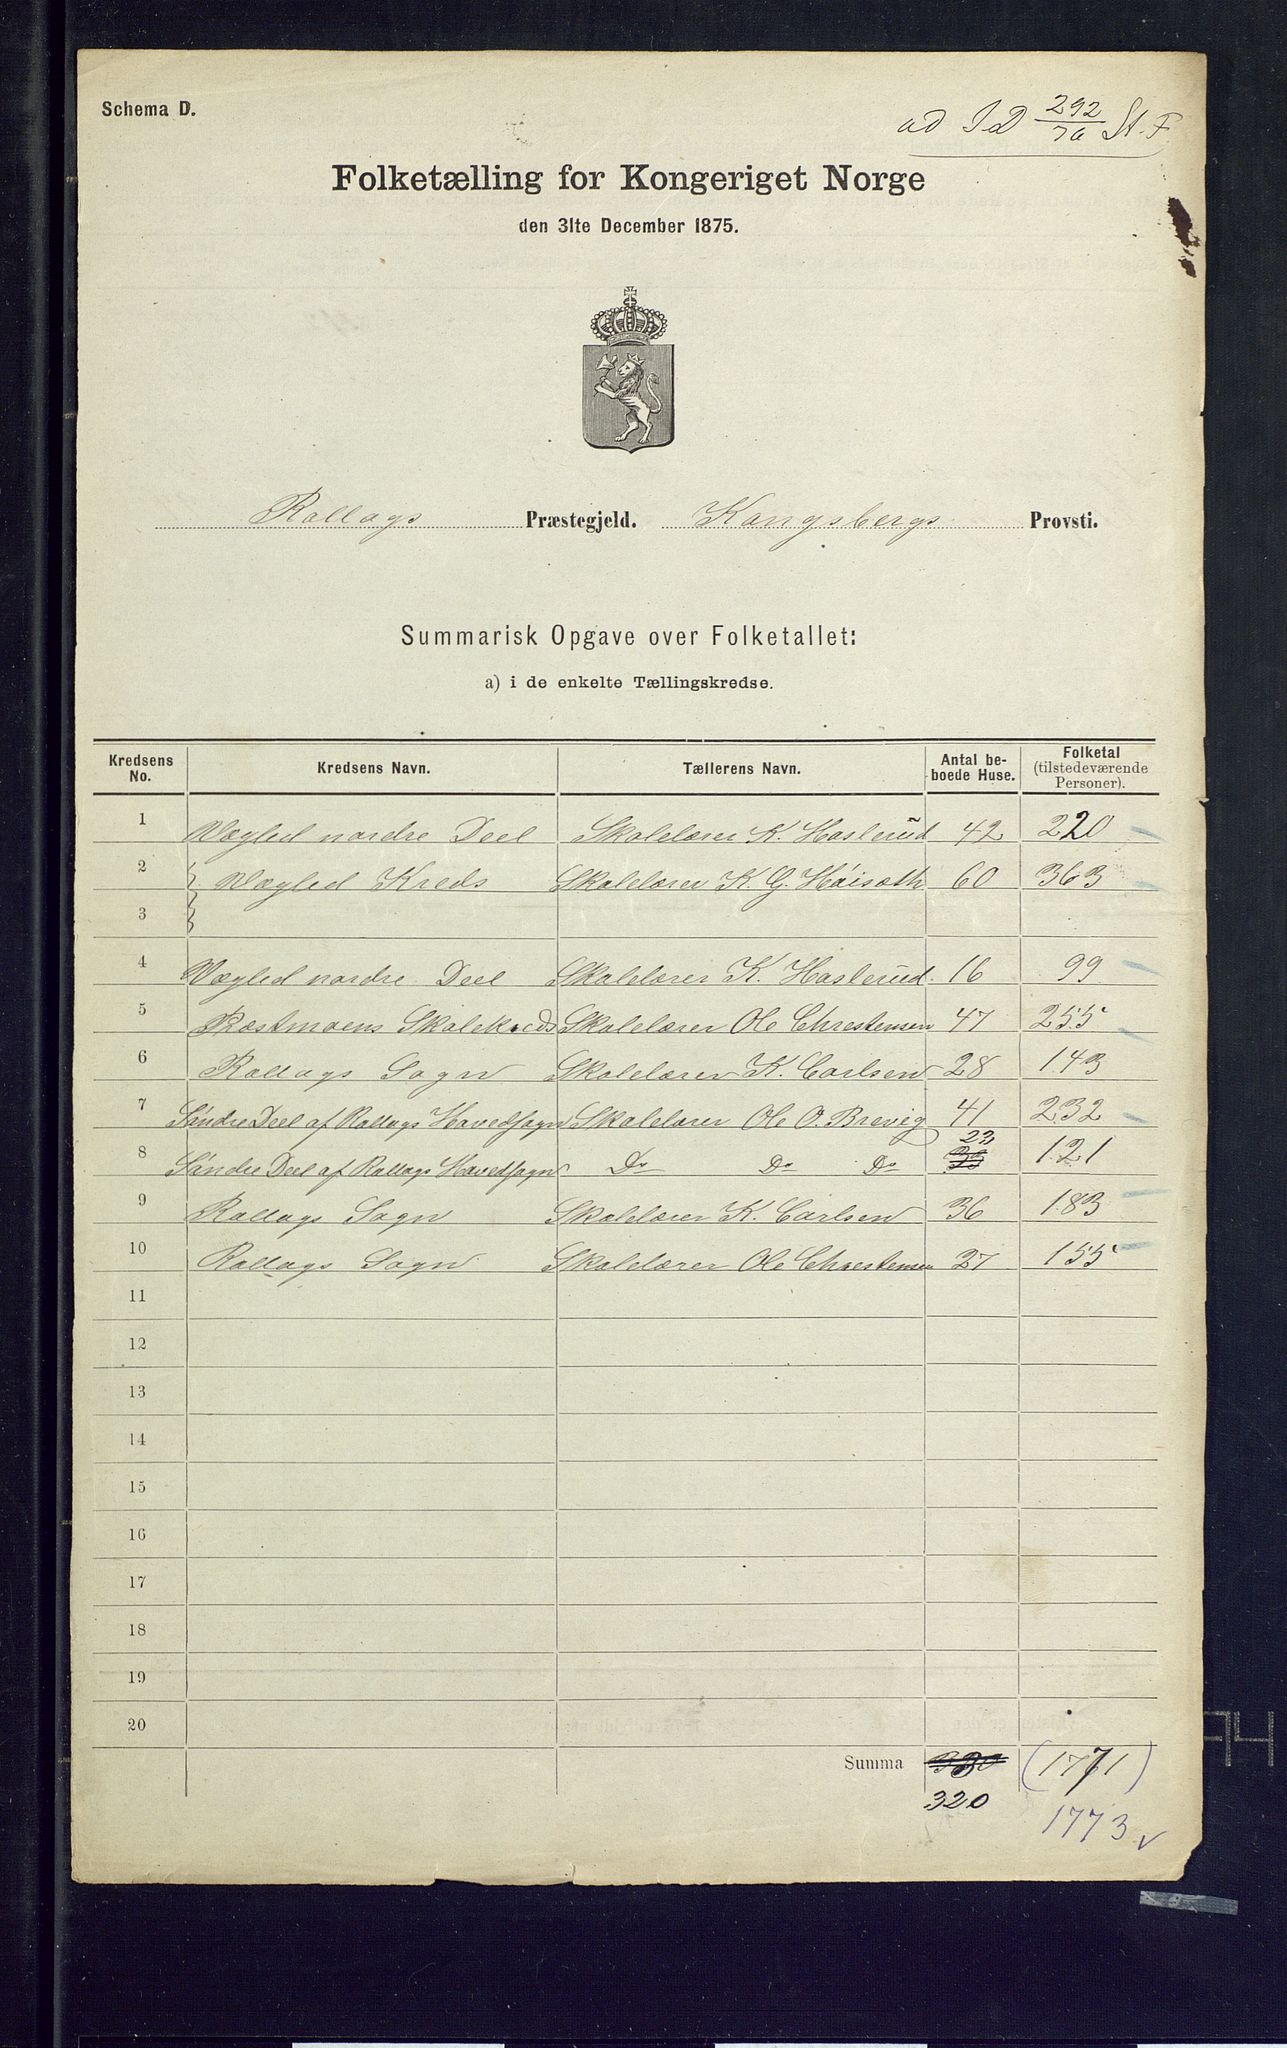 Schema D.
ad I D 292/76 St. F
Folketælling for Kongeriget Norge
den 31te December 1875.
Rollags Præstegjeld. Kongsbergs Provsti.
Summarisk Opgave over Folketallet:
a) i de enkelte Tællingskredse.
Kredsens No. Kredsens Navn. Tællerens Navn. Antal be-boede Huse. Folketal (tilstedeværende Personer).
1 Vægled nordre Deel Skolelærer K. Haslerud 42 220
2 Vægled Kreds Skolelærer K. G. Høisæth 60 363
3
4 Vægled nordre Deel Skolelærer K. Haslerud 16 99
5 Skolekreds Skolelærer Ole Chrestensen 47 255
6 Rollags Sogn Skolelærer K. Carlsen 28 143
7 Søndre Deel af Rollags Hovedsogn Skolelærer Ole O. Brevig 41 232
8 Søndre Deel af Rollags Hovedsogn Do Do Do 23 121
9 Rollags Sogn Skolelærer K. Carlsen 36 183
10 Rollags Sogn Skolelærer Ole Chrestensen 27 155
11
12
13
14
15
16
17
18
19
20
Summa 330 (1771)
320 1773